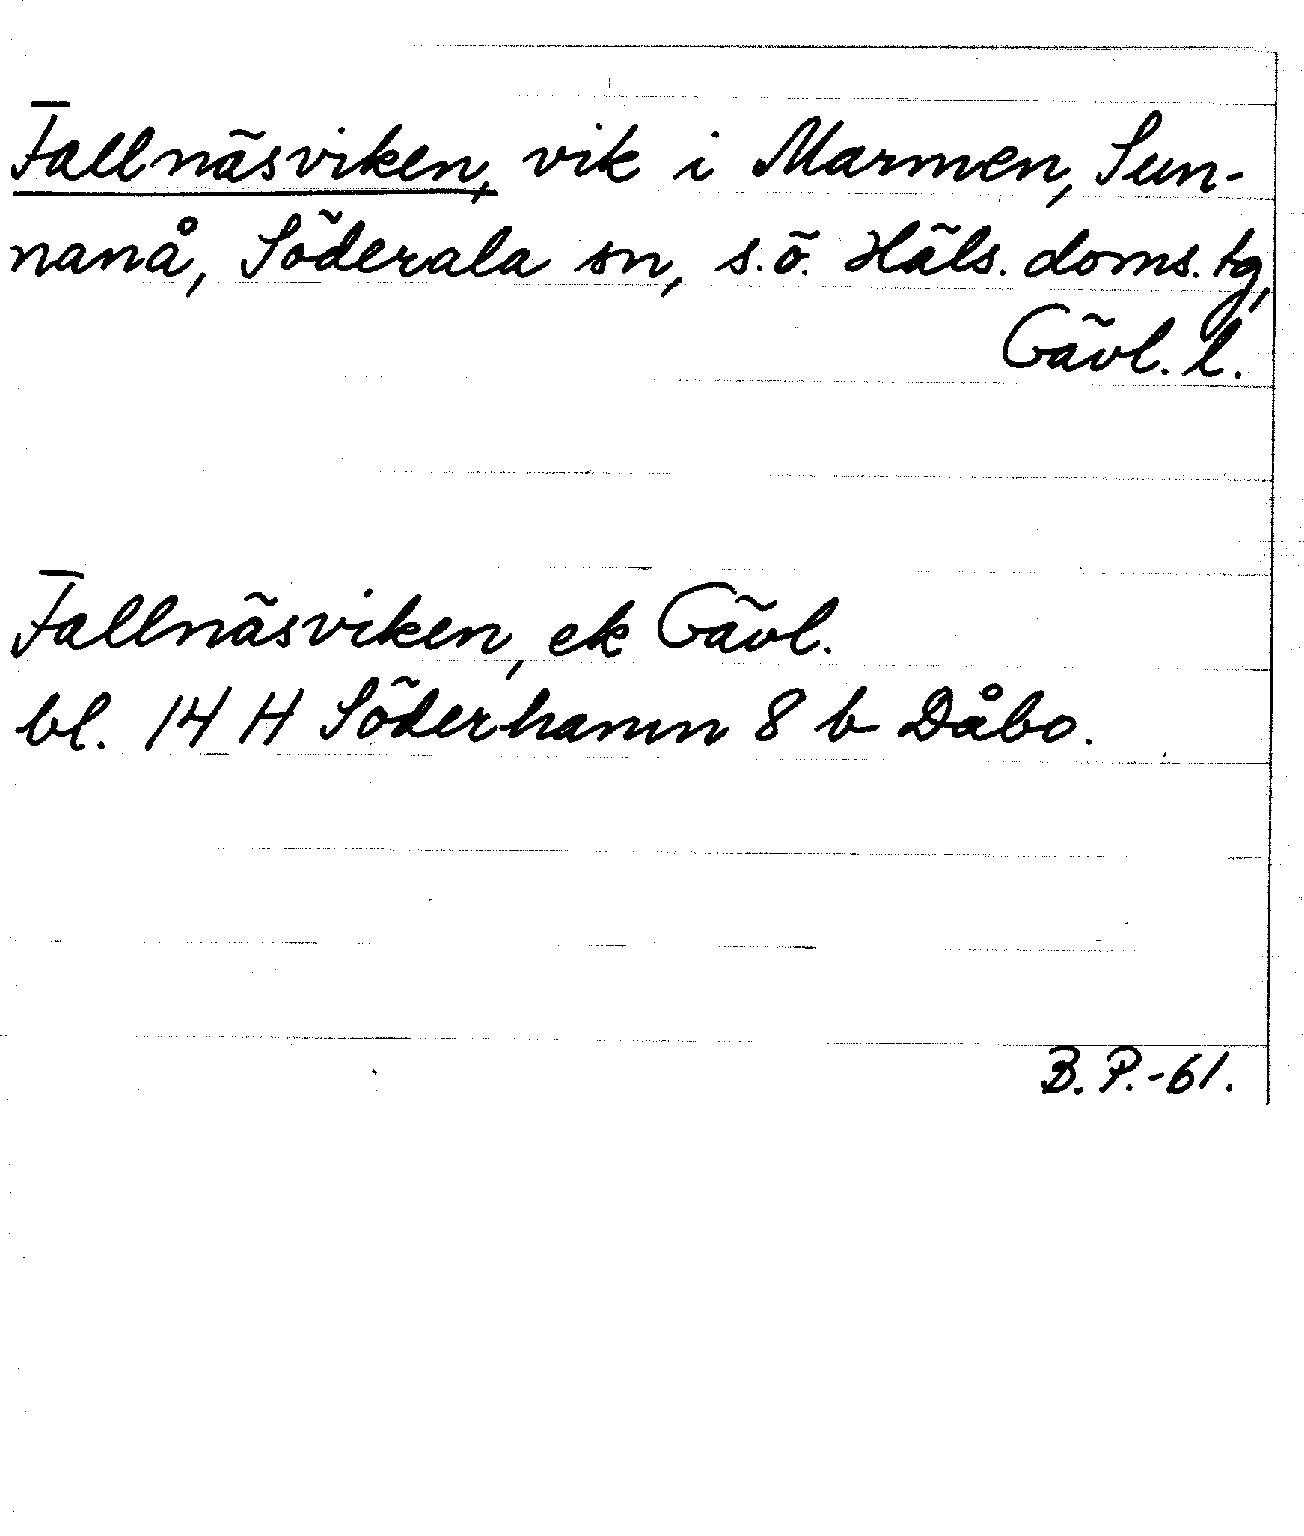 Tallnäsviken, vik i Marmen, Sun-
nanå, Söderala sn, s.ö. Häls. doms. tg,
Gävl. l.
Tallnäsviken, ek Gävl.
bl. 14 H Söderhamn 8 b Dåbo.
B. P.-61.